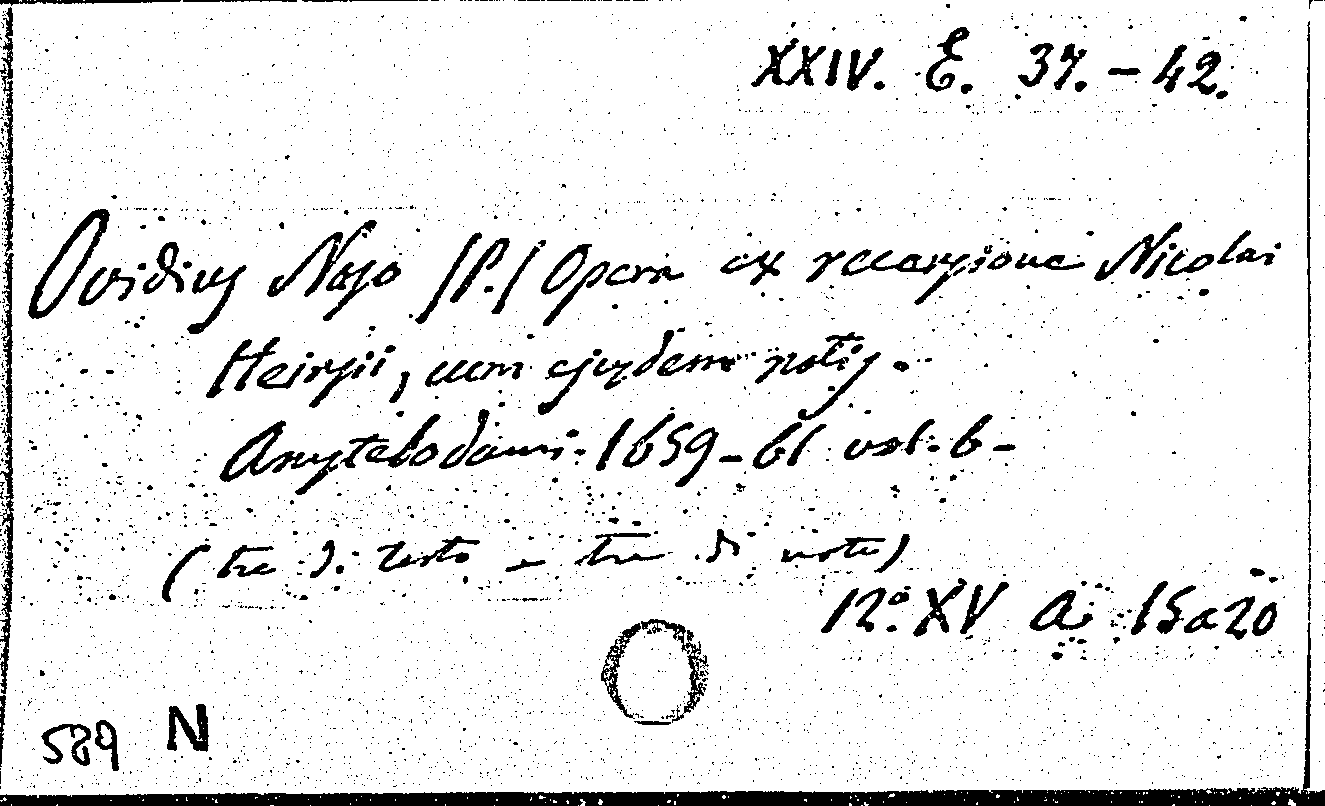 XXIV. E. 37. - 42.
Ovidius Naso /P./ Opera ex recensione Nicolai
Heinsii, cum ejusdem notis.
Amstelodami. 1659-61 vol. 6-
(tre di testo e tre di note)
12.° XV A 15a20
589 N